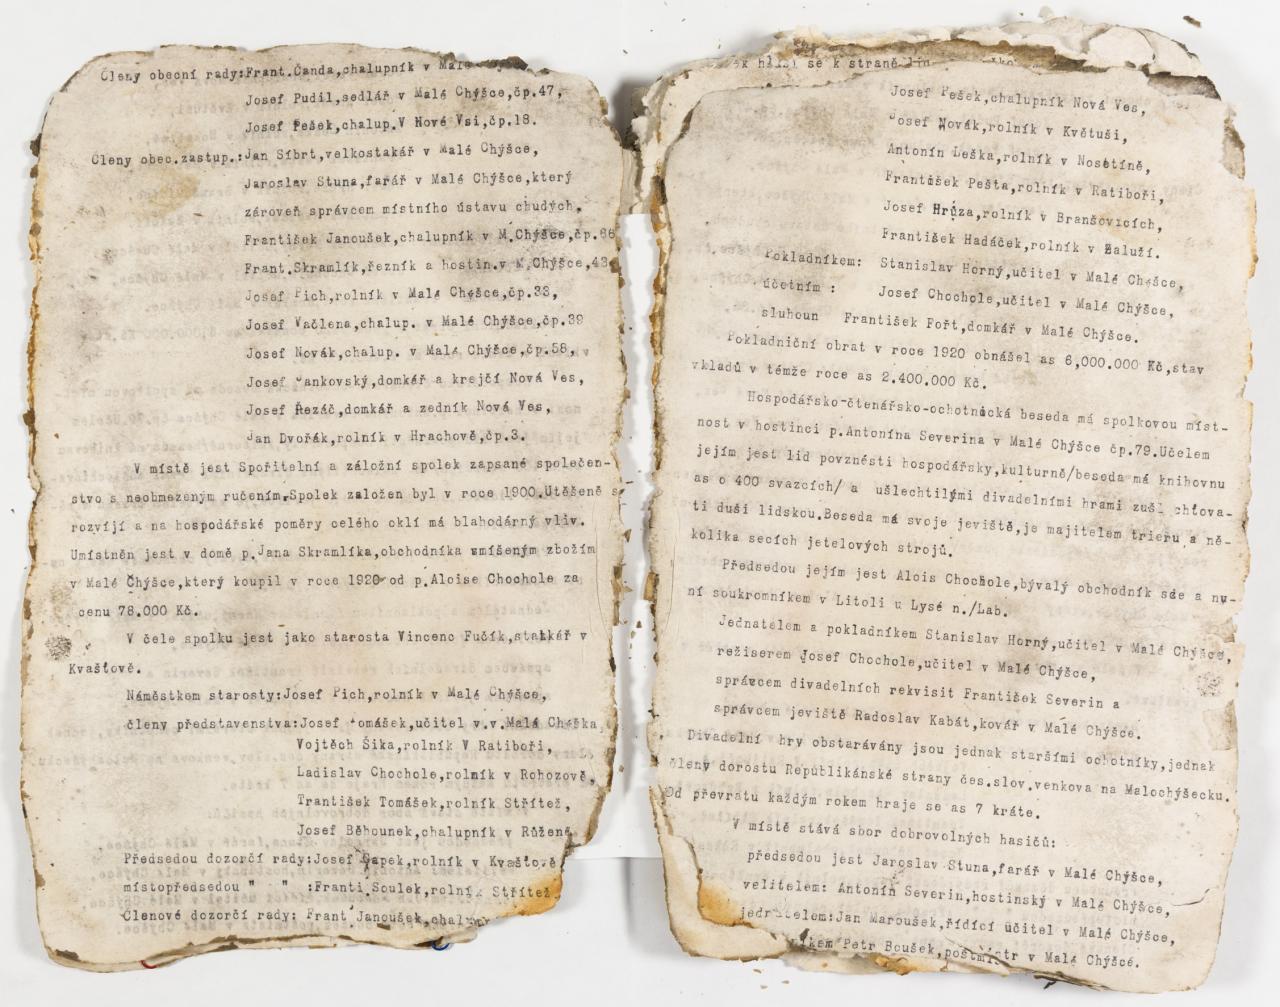 Členy obecní rady:Frant.Čanda,chalupník v Malé
Josef Pudil,sedlář v Malé Chýšce,čp.47,
Josef Pešek,chalup.V Nové Vsi,čp.18.
Členy obec.zastup.:Jan Síbrt,velkostakář v Malé Chýšce,
Jaroslav Stuna,farář v Malé Chýšce,který
zároveň správcem místního ústavu chudých,
František Janoušek,chalupník v M.Chýšce,čp.66
Frant.Skramlík,řezník a hostin.v M.Chýšce,43
Josef Pich,rolník v Malé Chýšce,čp.33,
Josef Vačlena,chalup. v Malé Chýšce,čp.39
Josef Novák,chalup. v Malé Chýšce,čp.58,
Josef Jankovský,domkář a krejčí Nová Ves,
Josef Řezáč,domkář a zedník Nová Ves,
Jan Dvořák,rolník v Hrachově,čp.3.
V místě jest Spořitelní a záložní spolek zapsané společen-
stvo s neobmezeným ručením.Spolek založen byl v roce 1900.Utěšeně s
rozvíjí a na hospodářské poměry celého oklí má blahodárný vliv.
Umístněn jest v domě p.Jana Skramlíka,obchodníka smíšeným zbožím
v Malé Chýšce,který koupil v roce 1920 od p.Aloise Chochole za
cenu 78.000 Kč.
V čele spolku jest jako starosta Vincenc Fučík,statkář v
Kvašťově.
Náměstkem starosty:Josef Pich,rolník v Malé Chýšce,
členy představenstva:Josef Tomášek,učitel v.v.Malá Chýška,
Vojtěch Šika,rolník V Ratiboři,
Ladislav Chochole,rolník v Rohozově,
Trantišek Tomášek,rolník Střítež,
Josef Běhounek,chalupník v Růžené
Předsedou dozorčí rady:Josef Čapek,rolník v Kvašťově
místopředsedou " " :Franti.Soulek,rolník Střítež
Členové dozorčí rady: Frant Janoušek,chalup
hlásí se k straně
Josef Pešek,chalupník Nová Ves,
Josef Novák,rolník v Květuši,
Antonín Leška,rolník v Nosetíně,
František Pešta,rolník v Ratiboři,
Josef Hrůza,rolník v Branšovicích,
František Hadáček,rolník v Zaluží.
Pokladníkem: Stanislav Horný,učitel v Malé Chýšce,
účetním : Josef Chochole,učitel v Malé Chýšce,
sluhoun František Fořt,domkář v Malé Chýšce.
Pokladniční obrat v roce 1920 obnášel as 6,000.000 Kč,stav
vkladů v témže roce as 2.400.000 Kč.
Hospodářsko-čtenářsko-ochotnická beseda má spolkovou míst-
nost v hostinci p.Antonína Severina v Malé Chýšce čp.79.Účelem
jejím jest lid povznésti hospodářsky,kulturně/beseda má knihovnu
as o 400 svazcích/ a ušlechtilými divadelními hrami zušlechťova-
ti duši lidskou.Beseda má svoje jeviště,je majitelem trieru a ně-
kolika secích jetelových strojů.
Předsedou jejím jest Alois Chochole,bývalý obchodník sde a ny-
ní soukromníkem v Litoli u Lysé n./Lab.
Jednatelem a pokladníkem Stanislav Horný,učitel v Malé Chýšce,
režiserem Josef Chochole,učitel v Malé Chýšce,
správcem divadelních rekvisit František Severin a
správcem jeviště Radoslav Kabát,kovář v Malé Chýšce.
Divadelní hry obstarávány jsou jednak staršími ochotníky,jednak
členy dorostu Republikánské strany čes.slov.venkova na Malochýšecku.
Od převratu každým rokem hraje se as 7 kráte.
V místě stává sbor dobrovolných hasičů:
předsedou jest Jaroslav Stuna,farář v Malé Chýšce,
velitelem: Antonín Severin,hostinský v Malé Chýšce,
jednatelem:Jan Maroušek,řídící učitel v Malé Chýšce,
Petr Boušek,poštmistr v Malé Chýšce.